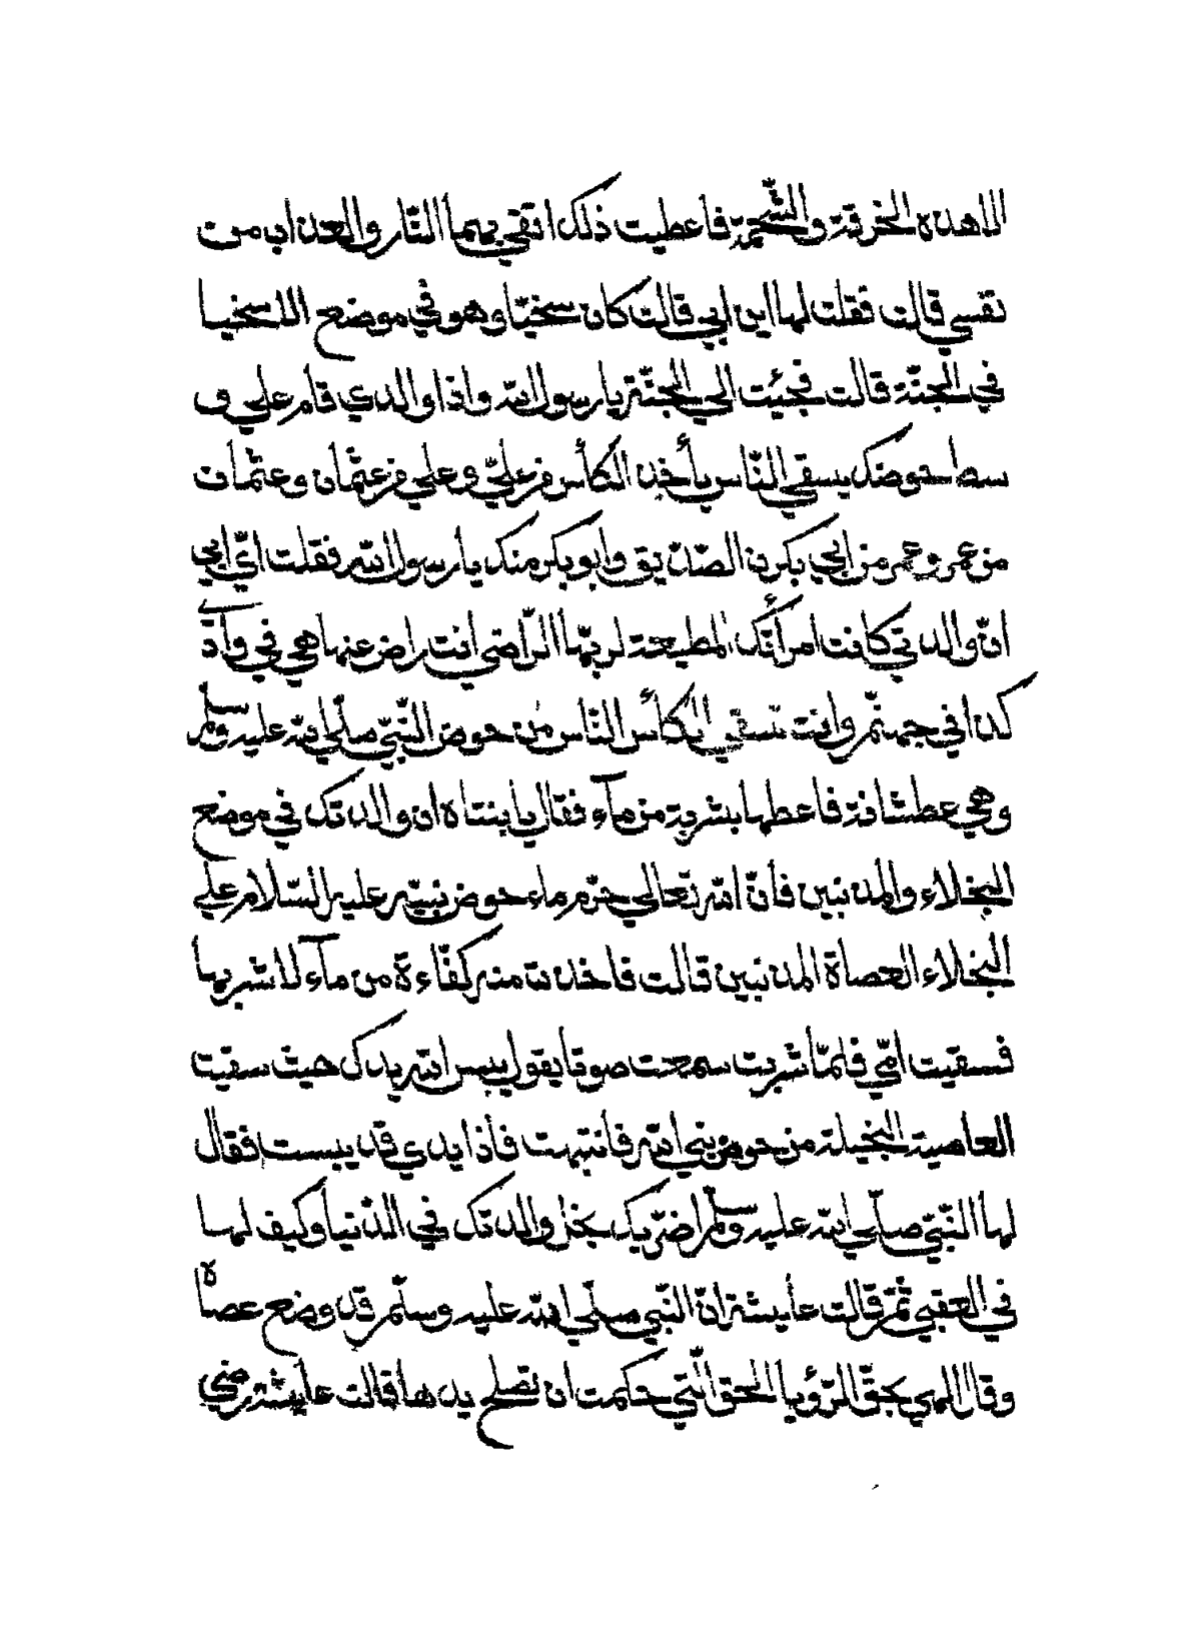 الا هذه الخرقة والشّحمة فاعطيت ذلك اتقي بهما النّار والعذاب من
نفسي قالت فقلت لها اين ابي قالت كان سخيّا وهو في موضع الاسخيا
في الجنّة قالت فجئيت الي الجنّة يا رسول الله واذا والدي قام علي و
سط حوضك يسقي النّاس يأخذ الكأس من عليّ وعلي من عثمان وعثمان
من عمر وعمر من ابي بكرن الصّدّيق وابو بكر منك يا رسول الله فقلت ايّ ابي
انّ والدتي كانت امرأتك المطيعة لربّها الرّاضي انت راض عنها هي في وآد
كذا في جهنّم وانت تسقي الكأس النّاس من حوض النّبيّ صلّي الله عليه وسلم
وهي عطشانة فاعطها بشربة من مآء فقال يا بنتاه ان والدتك في موضع
البخلاء والمذنبين فأنّ الله تعالي حرّم ماء حوض نبيّه عليه السّلام علي
البخلاء العصاة المذنبين قالت فاخذت منه كفّاءة من مآء لاشربها
فسقيت امّي فلمّا شربت سمعت صوتا يقول يبس الله يدك حيث سقيت
العاصية البخيلة من حوض نبي الله فانتبهت فأذا يدي قد يبست فقال
لها النّبيّ صلّي الله عليه وسلّم اضرّيك بخل والدتك في الدّنيا وكيف لها
في العقبي ثمّ قالت عأيشة انّ النّبي صلّي الله عليه وسلّم قد وضع عصاه
وقال الهي بحقّ الرّؤيا الحق الّتي حكمت ان تصلح يدها قالت عأيشة رضي